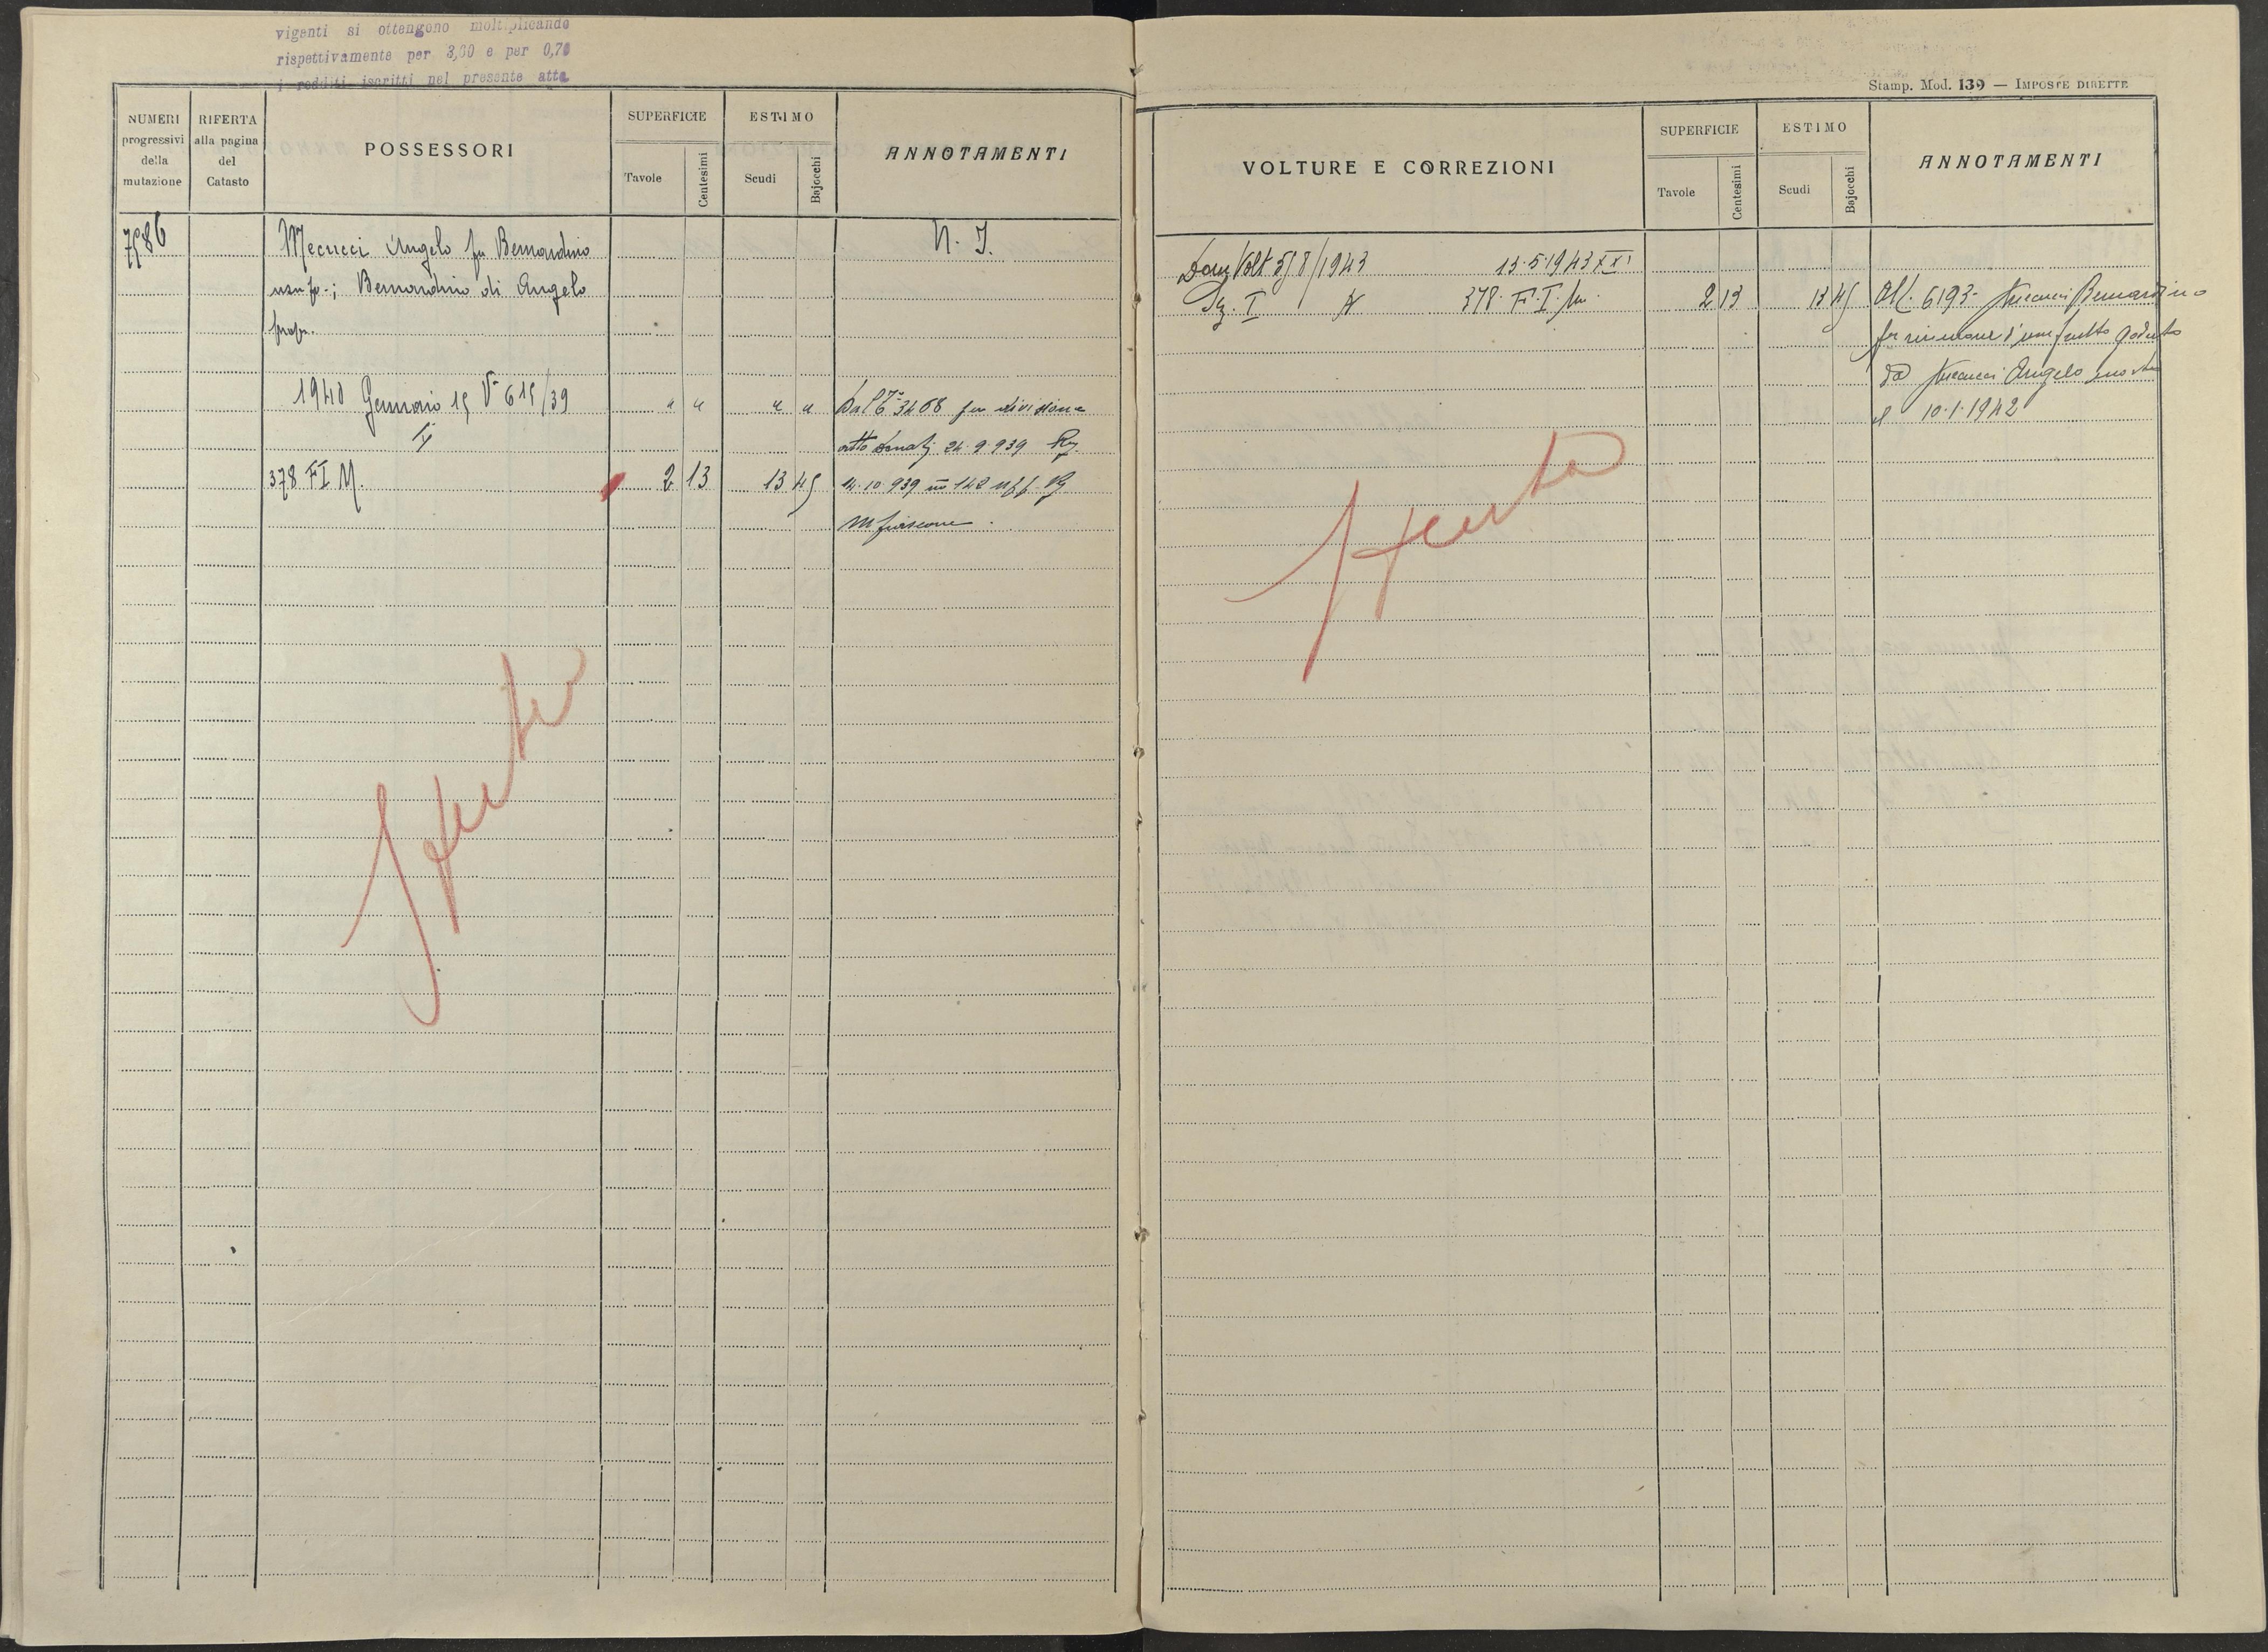 viganti si ottengono moltiplicando
rispettivamente per 3,60 e per 0,70
i redditi iscritti nel presente atto
NUMERI
progressivi
della
mutazione
RIFERTA
alla pagina
del
Catasto
POSSESSORI
SUPERFICIE
Tavole
Centesimi
ESTIMO
Scudi
Bajocchi
ANNOTAMENTI
7586
Mecucci Angelo fu Bernardino
N. I.
usufr.; Bernardino di Angelo
propr.
1940 Gennaio 15 V 615/39
" " " "
Dal 3468 per divisione
atto 24.9.939 Rg.
378 FI M.
2 13
13 45
14.10.939 142 uff. Rg
Mfiascone.
Spenta
Stamp. Mod. 139 — IMPOSTE DIRETTE
VOLTURE E CORREZIONI
SUPERFICIE
Tavole
Centesimi
ESTIMO
Scudi
Bajocchi
ANNOTAMENTI
Volt 58/1943 13.5.1943 XXI
Sz. I 378 F.I M.
2 13
13 45
All. 6193 Mecucci Bernardino
per riunione d'usufrutto goduto
da Mecucci Angelo morto
il 10.1.1942
Spenta